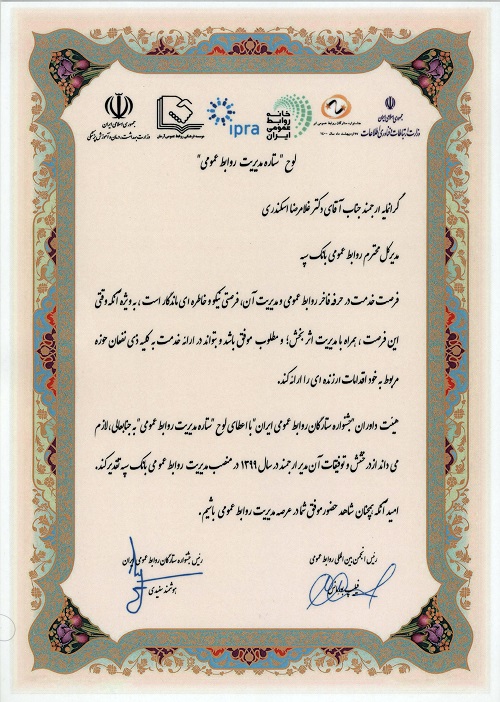 جمهوری اسلامی ایران
وزارت ارتباطات و فناوری اطلاعات
خانه
روابط
عمومی
ایران
ipra
جمهوری اسلامی ایران
وزارت بهداشت، درمان و آموزش پزشکی
لوح "ستاره مدیریت روابط عمومی"
گرانمایه ارجمند جناب آقای دکتر غلامرضا اسکندری
مدیرکل محترم روابط عمومی بانک سپه
فرصت خدمت در حرفه فاخر روابط عمومی و مدیریت آن، فرصتی نیکو و خاطره ای ماندگار است، به ویژه آنکه وقتی
این فرصت، همراه با مدیریت اثربخش؛ و مطلوب موفق باشد و بتواند در ارائه خدمت به کلیه ذی نفعان حوزه
مربوط به خود اقدامات ارزنده ای را ارائه کند.
هیئت داوران "جشنواره ستارگان روابط عمومی ایران" با اعطای لوح "ستاره مدیریت روابط عمومی" به جنابعالی، لازم
می داند از درخشش و توفیقات آن مدیر ارجمند در سال ۱۳۹۹ در منصب مدیریت روابط عمومی بانک سپه تقدیر کند.
امید آنکه همچنان شاهد حضور موفق شما در عرصه مدیریت روابط عمومی باشیم.
رئیس انجمن بین المللی روابط عمومی
رئیس جشنواره ستارگان روابط عمومی ایران
هوشمند سفیدی